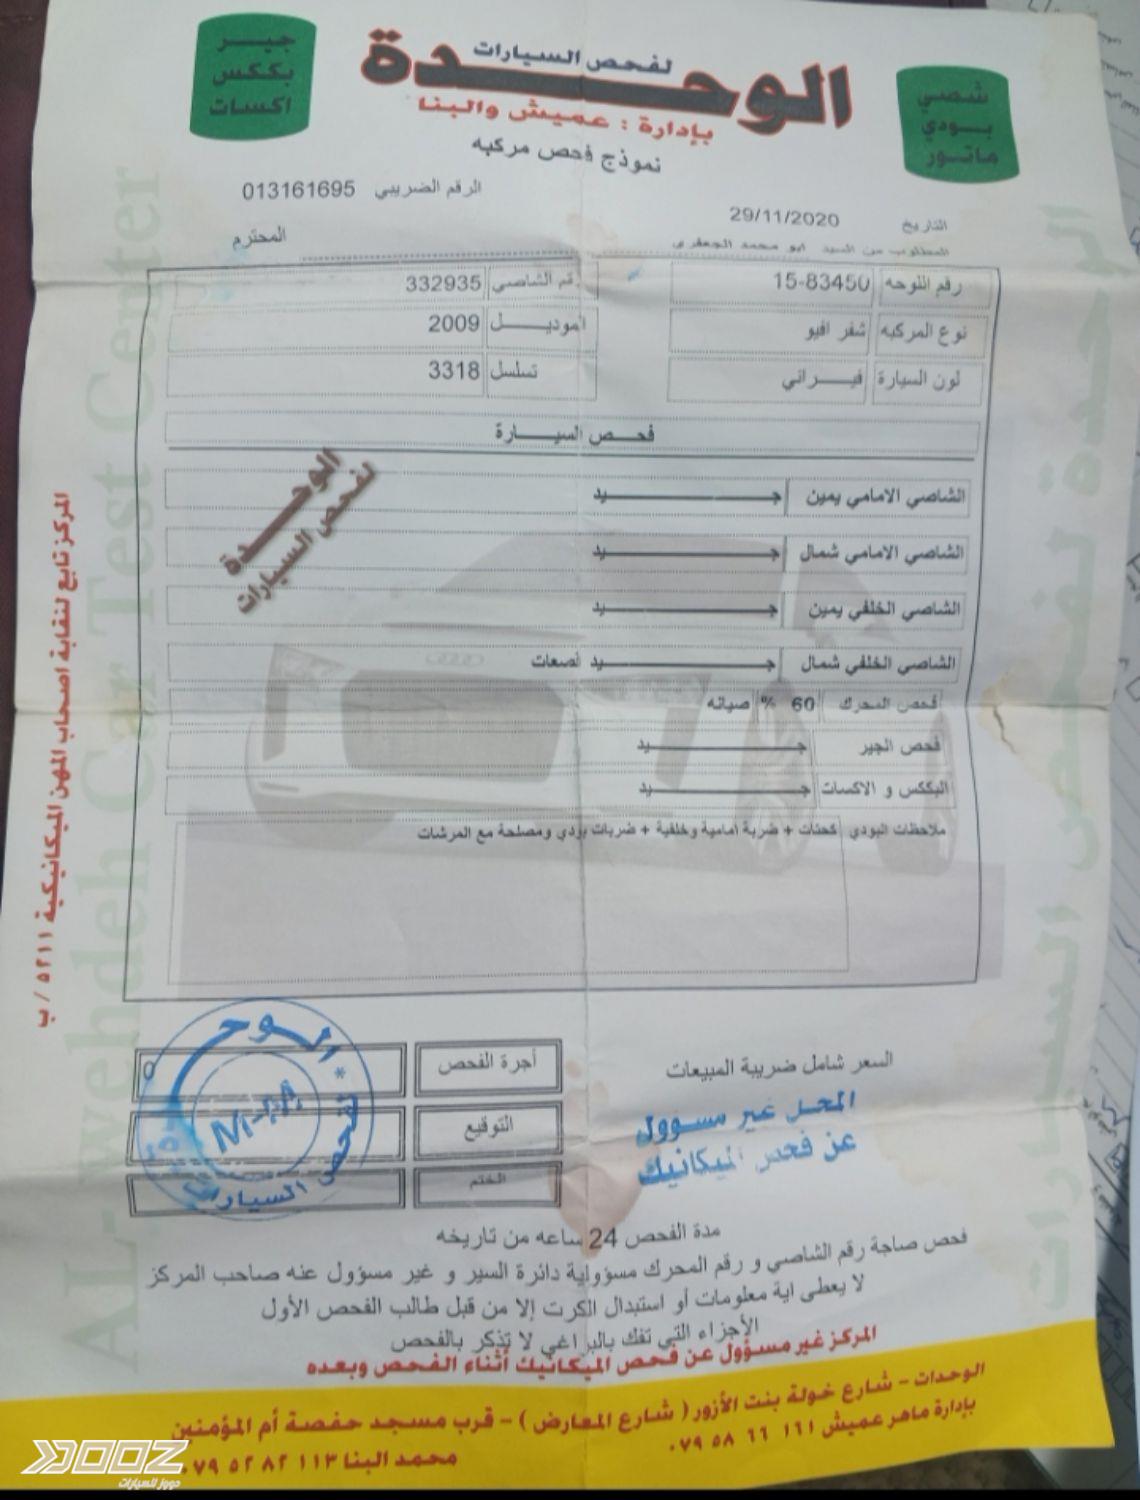 جيـــر
بككس
اكسات
لفحص السيارات
الوحـــدة
بإدارة : عميش والبنا
شصي
بـودي
ماتور
نموذج فحص مركبه
الرقم الضريبي 013161695
التاريخ 29/11/2020
المطلوب من السيد ابو محمد الجعفري المحترم
رقم اللوحه 15-83450 رقم الشاصي 332935
نوع المركبه شفر افيو الموديـــل 2009
لون السيارة فيـــراني تسلسل 3318
فحـــص السيـــارة
الوحـــدة
لفحص السيارات
الشاصي الامامي يمين جـــــيد
الشاصي الامامي شمال جـــــيد
الشاصي الخلفي يمين جـــــيد
الشاصي الخلفي شمال جـــــيد قصعات
فحص المحرك 60 % صيانه
فحص الجير جـــــيد
البككس و الاكسات جـــــيد
ملاحظات البودي كحتات + ضربة امامية وخلفية + ضربات بودي ومصلحة مع المرشات
المركز تابع لنقابة اصحاب المهن الميكانيكية ٥٢١١ / ب
AL-wehdeh Car Test Center
الوحدة لفحص السيارات
السعر شامل ضريبة المبيعات
المحل غير مسؤول
عن فحص الميكانيك
أجرة الفحص 0
التوقيع
الختم
الوحدة
* لفحص السيارات
M-M
مدة الفحص 24 ساعه من تاريخه
فحص صاجة رقم الشاصي و رقم المحرك مسؤولية دائرة السير و غير مسؤول عنه صاحب المركز
لا يعطى اية معلومات أو استبدال الكرت إلا من قبل طالب الفحص الأول
الأجزاء التي تفك بالبراغي لا تذكر بالفحص
المركز غير مسؤول عن فحص الميكانيك أثناء الفحص وبعده
الوحدات - شارع خولة بنت الأزور ( شارع المعارض ) - قرب مسجد حفصة أم المؤمنين
بإدارة ماهر عميش ١٦١ ٦٦ ٥٨ ٠٧٩
محمد البنا ١١٣ ٨٢ ٥٢ ٠٧٩
DOOZ
دووز للسيارات